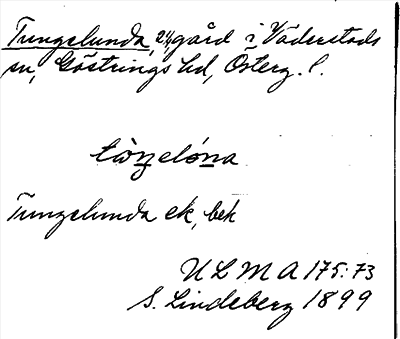 Tungelunda, 2 gård i Väderstads
sn, Göstrings hd, Österg. l.
Tungelunda ek, bek
ULMA 175:73
S. Lindeberg 1899